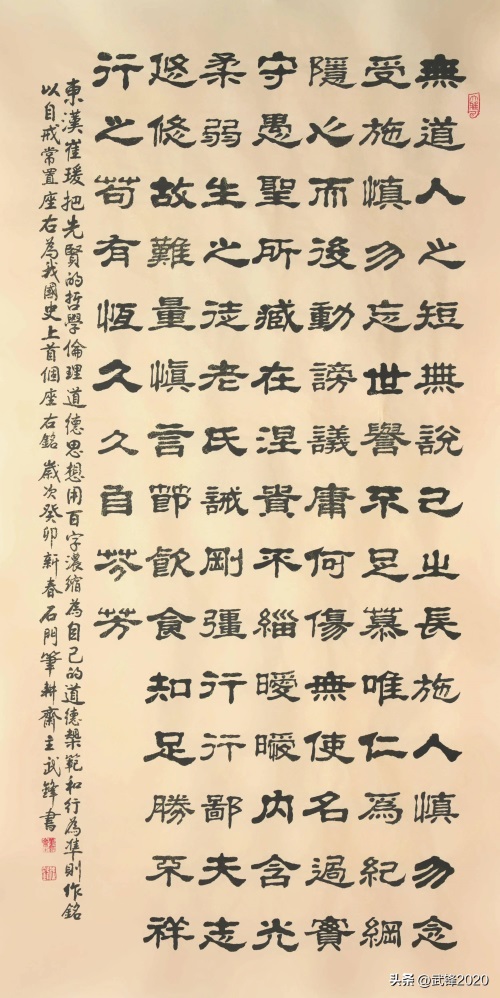 無道人之短無說己之長施人慎勿念
受施慎勿忘世譽不足慕唯仁為紀綱
隱心而後動謗議庸何傷無使名過實
守愚聖所臧在涅貴不緇曖曖內含光
柔弱生之徒老氏誡剛彊行行鄙夫志
悠悠故難量慎言節飲食知足勝不祥
行之苟有恆久久自芬芳
東漢崔瑗把先賢的哲學倫理道德思想用百字濃縮為自己的道德槼範和行為準則作銘
以自戒常置座右為我國史上首個座右銘歲次癸卯新春石門筆耕齋主武鋒書
头条 @武锋2020